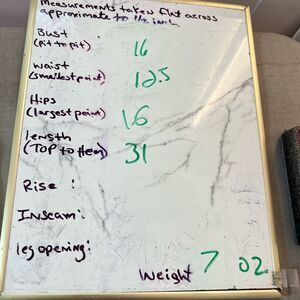 Measurements taken flat across
approximate to 1/2 inch
Bust 16
(pit to pit)
Waist 12.5
(smallest point)
Hips 16
(largest point)
Length 31
(TOP to Hem)
Rise :
Inseam:
leg opening:
Weight 7 02